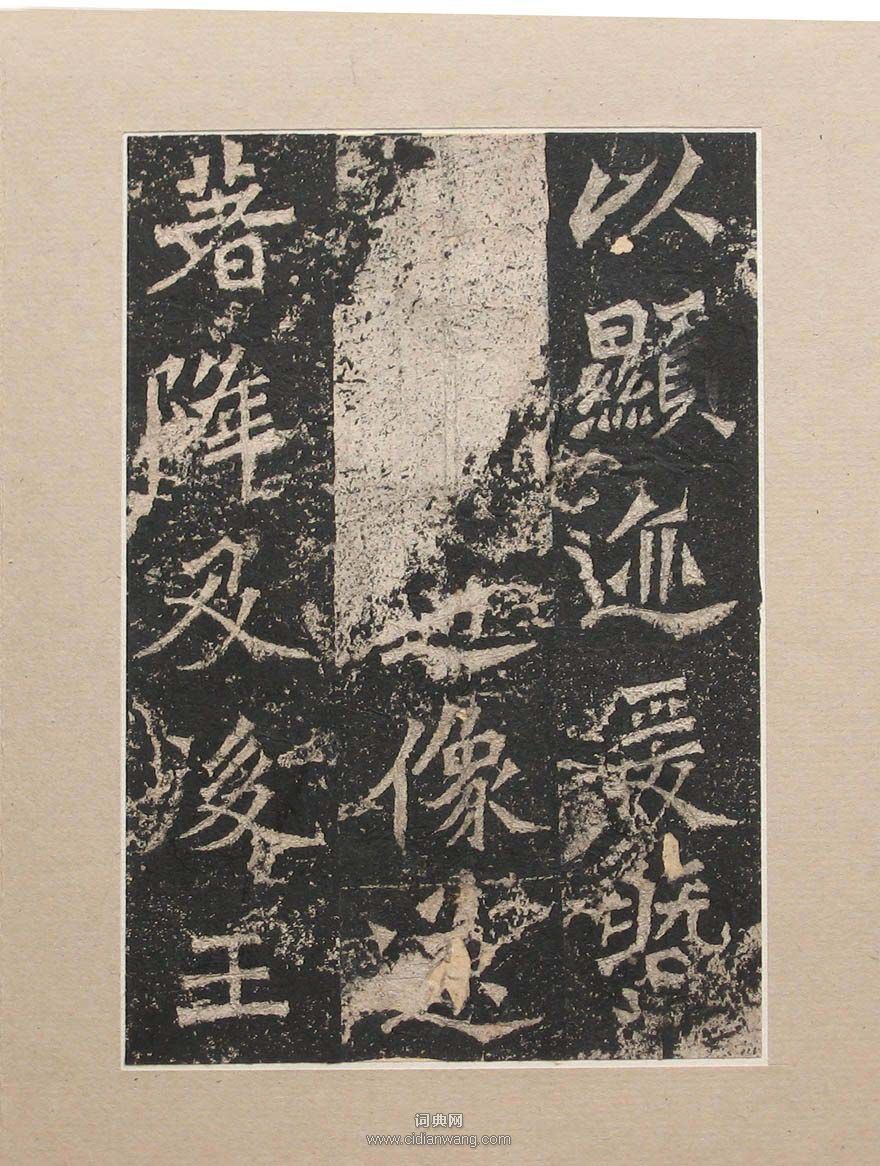 以顯迹爰暨
像遂
著降及後王
词典网
www.cidianwang.com